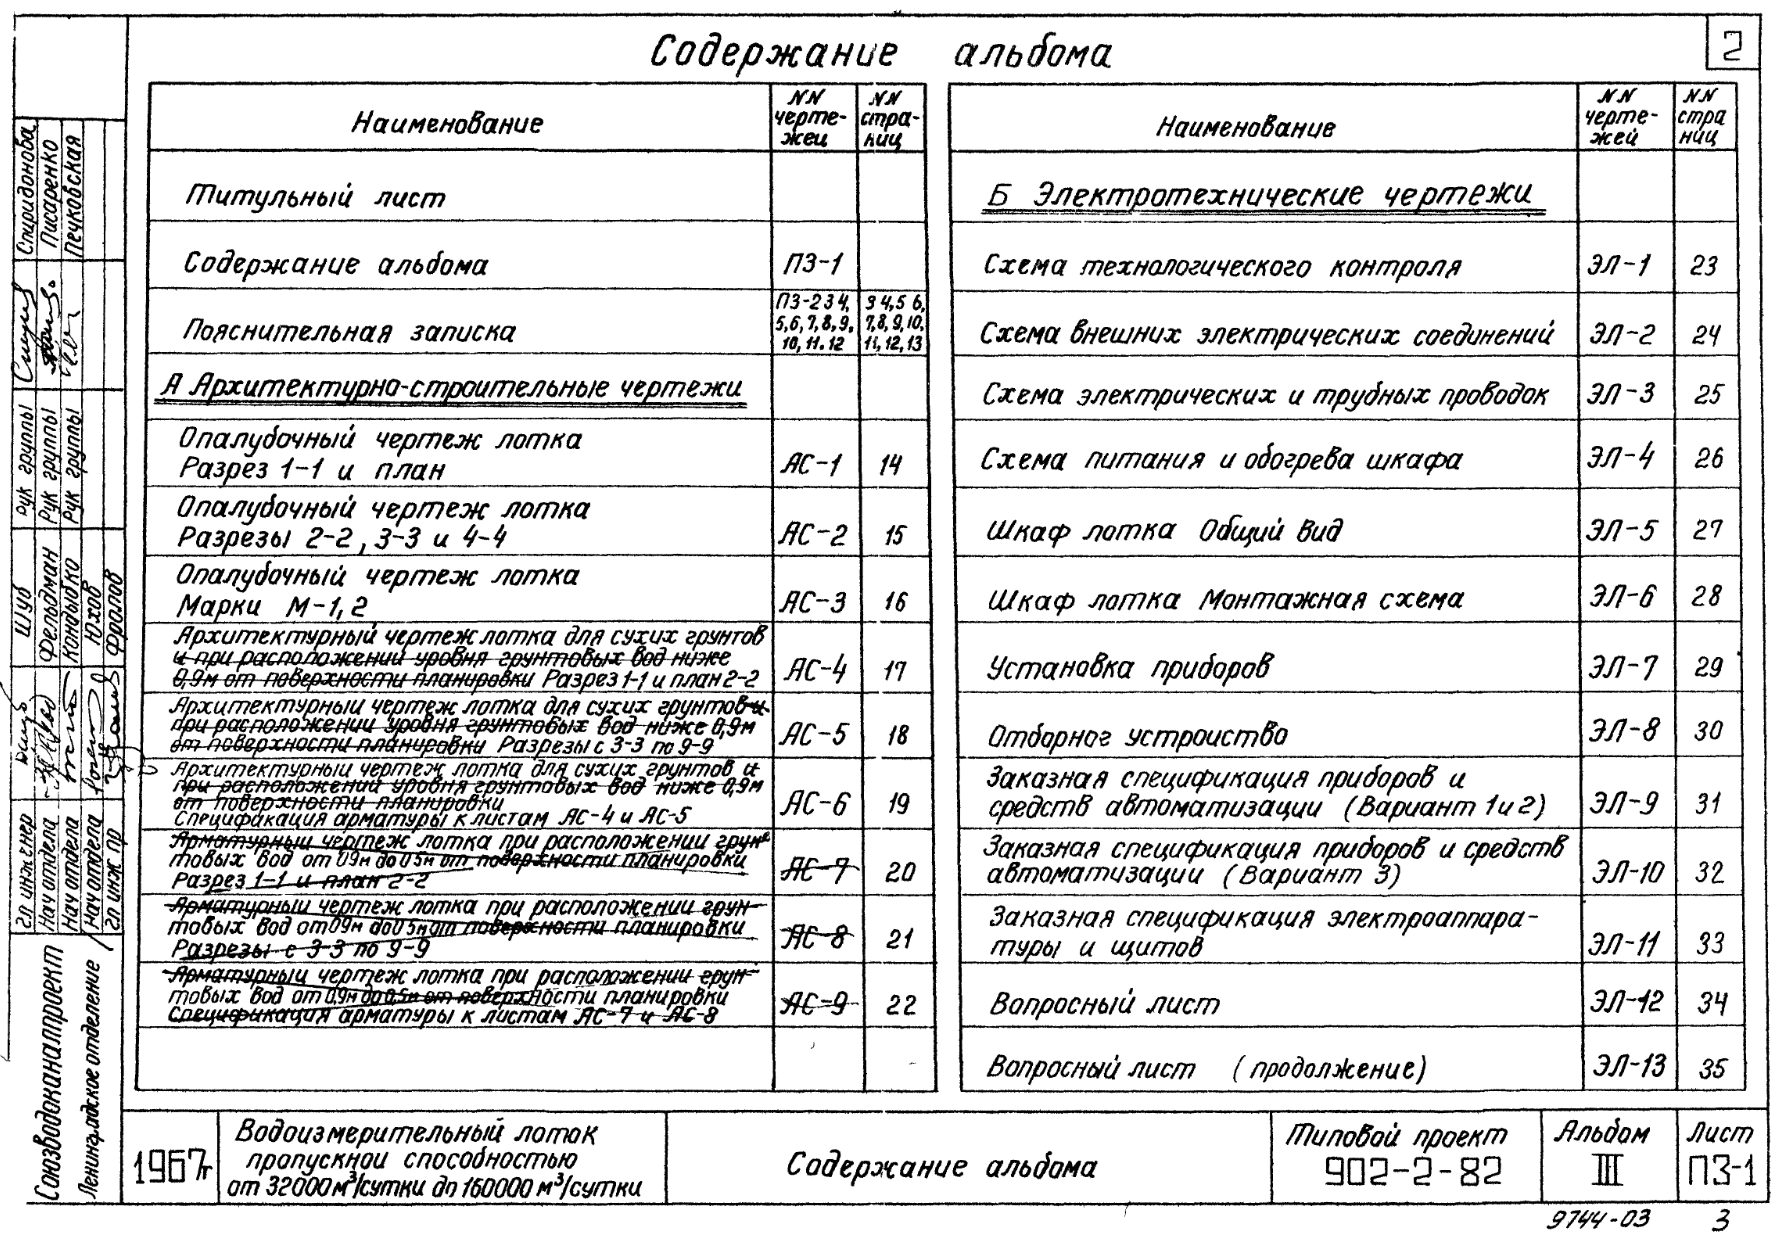 2
Содержание альбома
Наименование
NN чертежей
NN страниц
Титульный лист
Содержание альбома ПЗ-1
Пояснительная записка ПЗ-2 3 4, 5, 6, 7, 8, 9, 10, 11. 12 3 4, 5 6, 7, 8, 9, 10, 11, 12, 13
А Архитектурно-строительные чертежи
Опалубочный чертеж лотка
Разрез 1-1 и план АС-1 14
Опалубочный чертеж лотка
Разрезы 2-2, 3-3 и 4-4 АС-2 15
Опалубочный чертеж лотка
Марки М-1, 2 АС-3 16
Архитектурный чертеж лотка для сухих грунтов
и при расположении уровня грунтовых вод ниже
0,9м от поверхности планировки Разрез 1-1 и план 2-2 АС-4 17
Архитектурный чертеж лотка для сухих грунтов и
при расположении уровня грунтовых вод ниже 0,9м
от поверхности планировки Разрезы с 3-3 по 9-9 АС-5 18
Архитектурный чертеж лотка для сухих грунтов и
при расположении уровня грунтовых вод ниже 0,9м
от поверхности планировки
Спецификация арматуры к листам АС-4 и АС-5 АС-6 19
Арматурный чертеж лотка при расположении грун-
товых вод от 0,9м до 0,5м от поверхности планировки
Разрез 1-1 и план 2-2 АС-7 20
Арматурный чертеж лотка при расположении грун-
товых вод от 0,9м до 0,5м от поверхности планировки
Разрезы с 3-3 по 9-9 АС-8 21
Арматурный чертеж лотка при расположении грун-
товых вод от 0,9м до 0,5м от поверхности планировки
Спецификация арматуры к листам АС-7 и АС-8 АС-9 22
Наименование
NN чертежей
NN страниц
Б Электротехнические чертежи
Схема технологического контроля ЭЛ-1 23
Схема внешних электрических соединений ЭЛ-2 24
Схема электрических и трубных проводок ЭЛ-3 25
Схема питания и обогрева шкафа ЭЛ-4 26
Шкаф лотка Общий вид ЭЛ-5 27
Шкаф лотка Монтажная схема ЭЛ-6 28
Установка приборов ЭЛ-7 29
Отборное устройство ЭЛ-8 30
Заказная спецификация приборов и
средств автоматизации (Вариант 1 и 2) ЭЛ-9 31
Заказная спецификация приборов и средств
автоматизации (Вариант 3) ЭЛ-10 32
Заказная спецификация электроаппара-
туры и щитов ЭЛ-11 33
Вопросный лист ЭЛ-12 34
Вопросный лист (продолжение) ЭЛ-13 35
Союзводоканалпроект
Ленинградское отделение
Гл инженер Шуб
Нач отдела Фельдман
Нач отдела Кондыбко
Нач отдела Юхов
Гл инж пр Фролов
Рук группы Спиридонова
Рук группы Писаренко
Рук группы Печковская
1967г
Водоизмерительный лоток
пропускной способностью
от 32000 м³/сутки до 160000 м³/сутки
Содержание альбома
Типовой проект
902-2-82
Альбом
III
Лист
ПЗ-1
9744-03 3